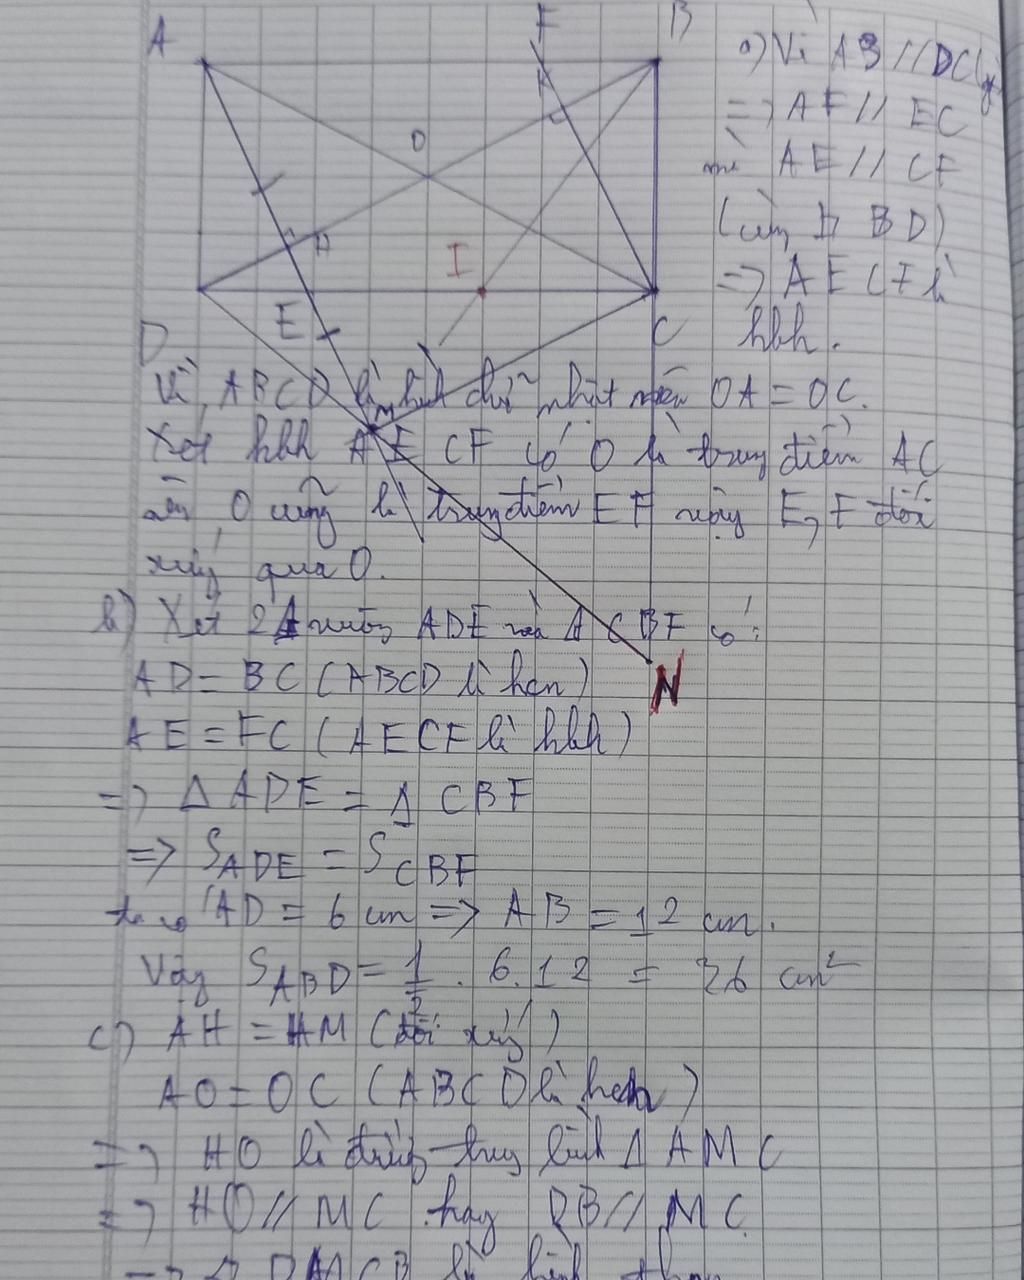 A
F
B
K
O
H
I
E
D
C
M
N
a) Vì AB // DC (gt)
=> AF // EC
mà AE // CF
(cùng ⊥ BD)
=> AECF là
hbh.
Vì ABCD là hình chữ nhật nên OA = OC.
Xét hbh AECF có O là trung điểm AC
nên O cũng là trung điểm EF vậy E, F đối
xứng qua O.
b) Xét 2 Δ vuông ADE và Δ CBF có:
AD = BC (ABCD là hcn)
AE = FC (AECF là hbh)
=> Δ ADE = Δ CBF
=> S_ADE = S_CBF
ta có AD = 6 cm => AB = 12 cm.
Vậy S_ABD = 1/2 . 6.12 = 36 cm²
c) AH = HM (đối xứng)
AO = OC (ABCD là hcn)
=> HO là đường trung bình Δ AMC
=> HO // MC hay DB // MC
=> DMCB là hình thang